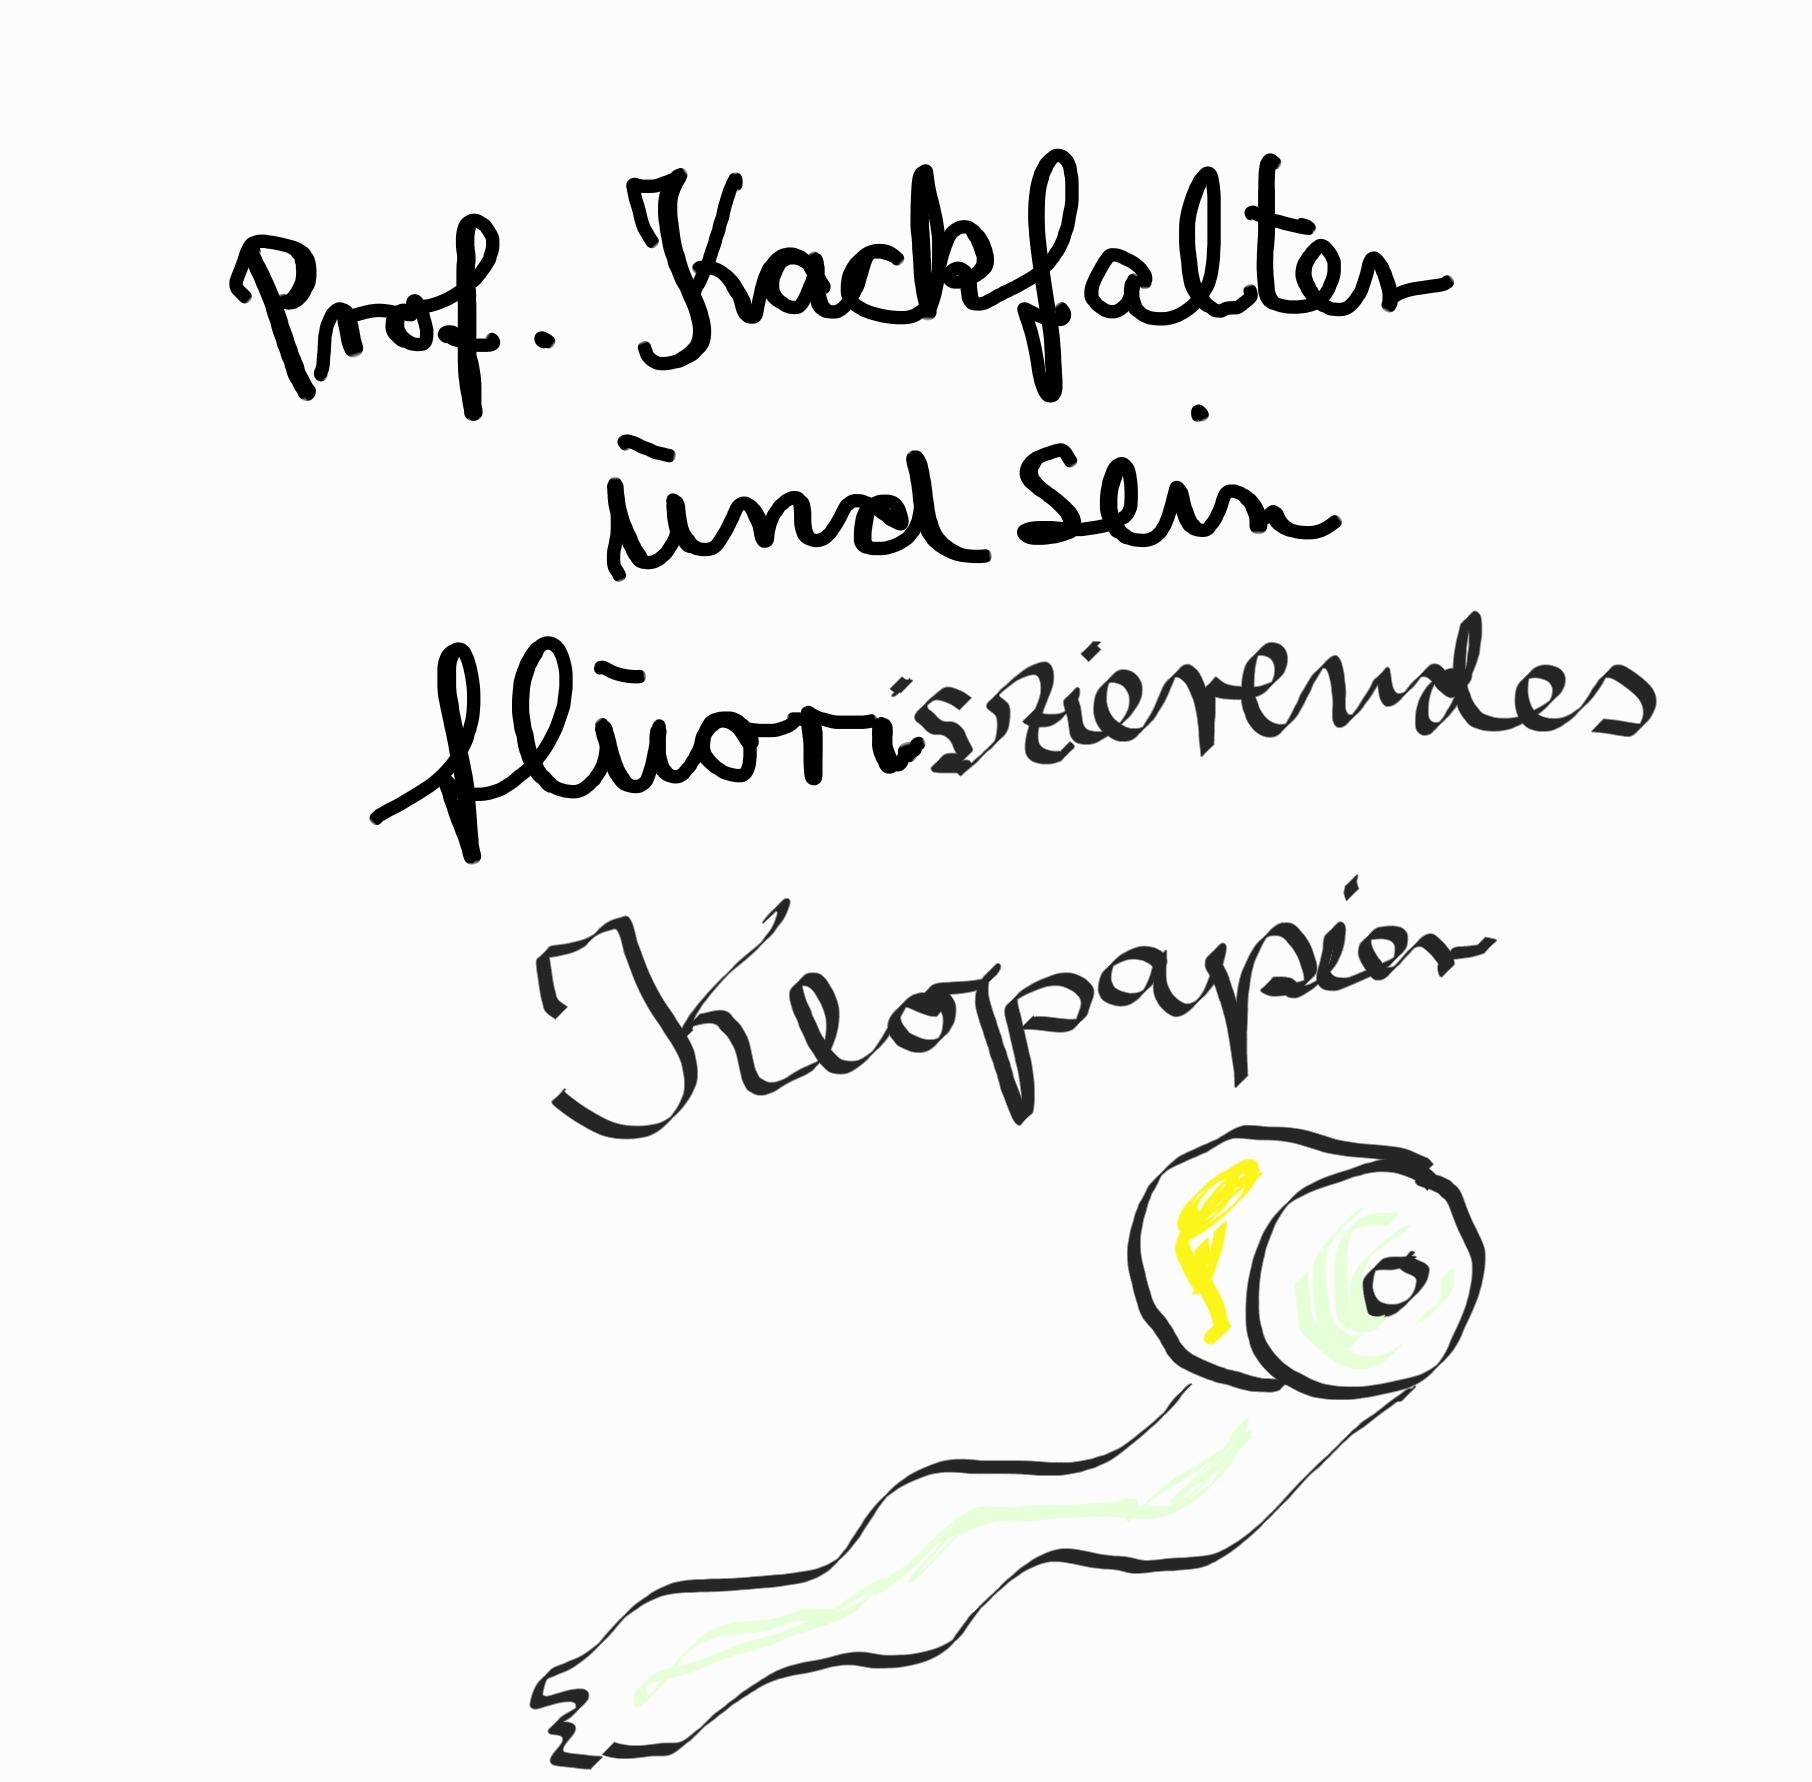 Prof. Kackfalter
und sein
fluoriszierendes
Klopapier